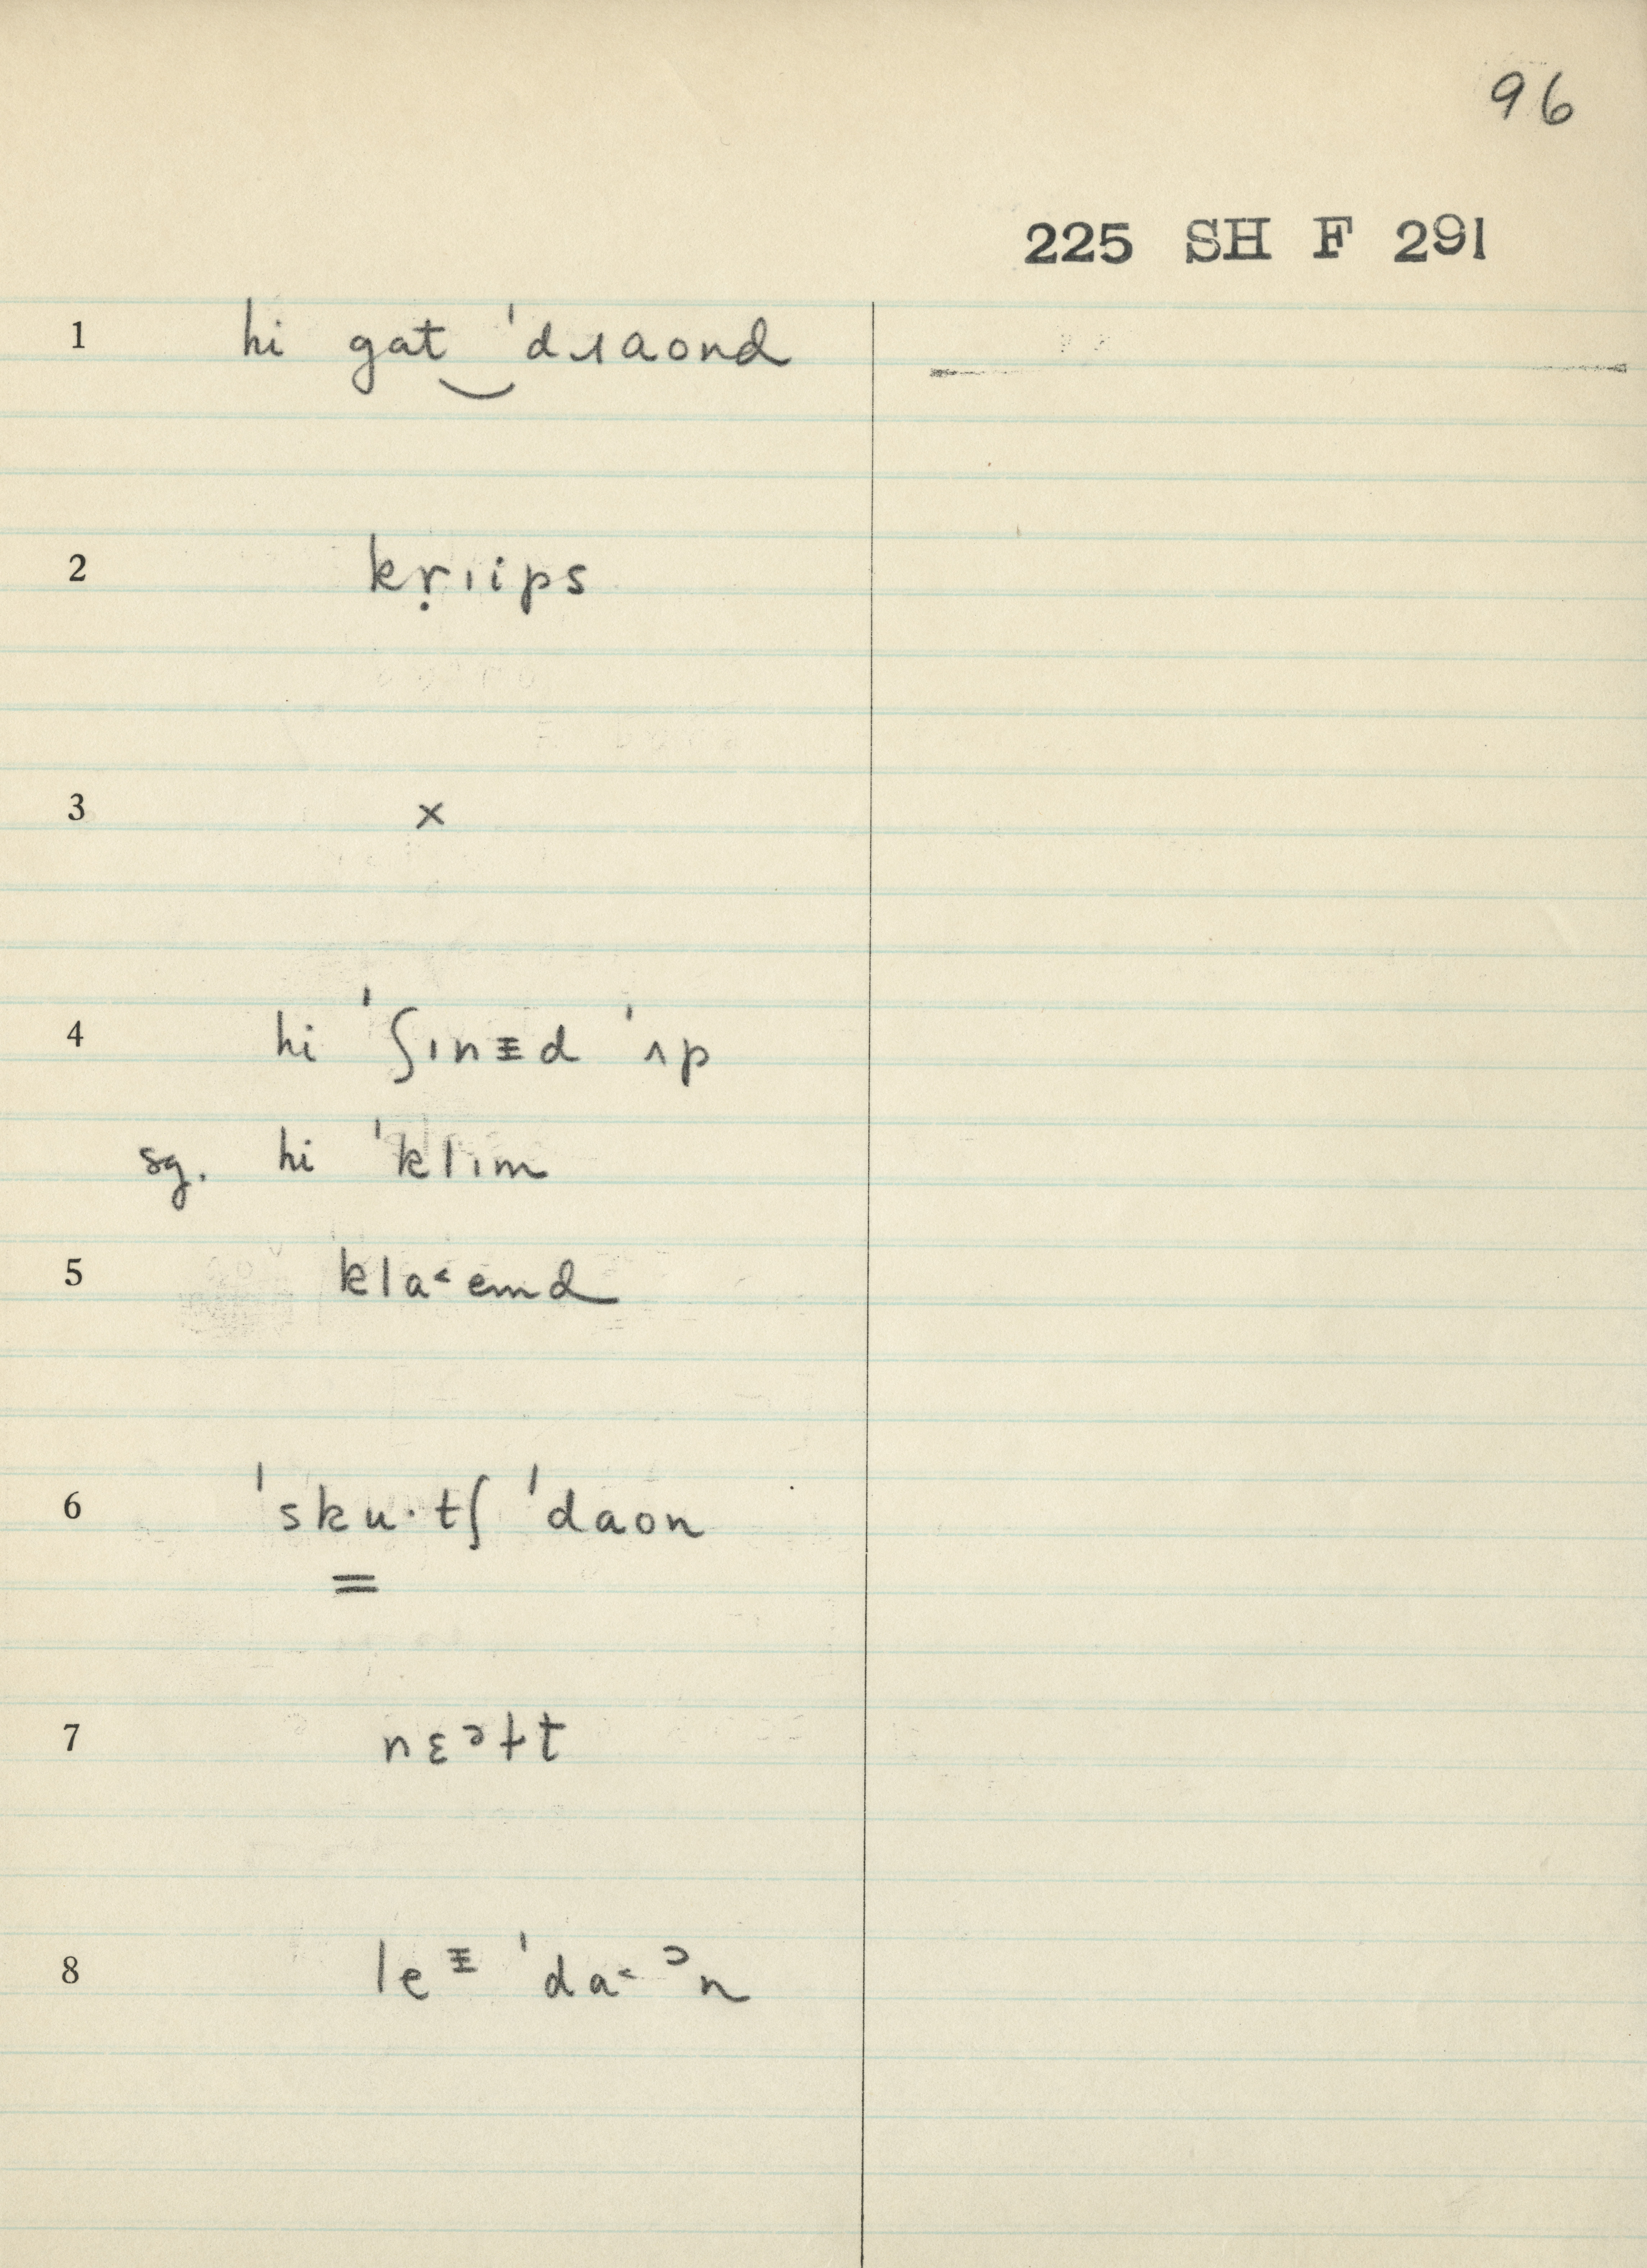 96
225 SH F 291
1 hi gat‿ˈdɹaond
2 kṛɪips
3 ×
4 hi ˈʃɪnɨd ˈʌp
sg. hi ˈklɪm
5 kla˂emd
6 ˈsku·tʃ ˈdaon
=
7 nɛᵊɫt
8 leᶤ ˈda˂ᵓn